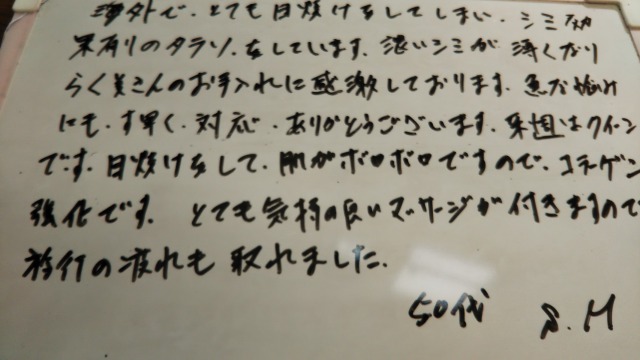 海外で、とても日焼けをしてしまい、シミ効
果有りのタラソ、をしています。濃いシミが薄くなり
らく身さんのお手入れに感激しております。急な悩み
にも、す早く、対応、ありがとうございます。来週はクイーン
です。日焼けをして、肌がボロボロですので、コラーゲン
強化です。とても気持の良いマッサージが付きますので
旅行の疲れも取れました。
50代 S.M